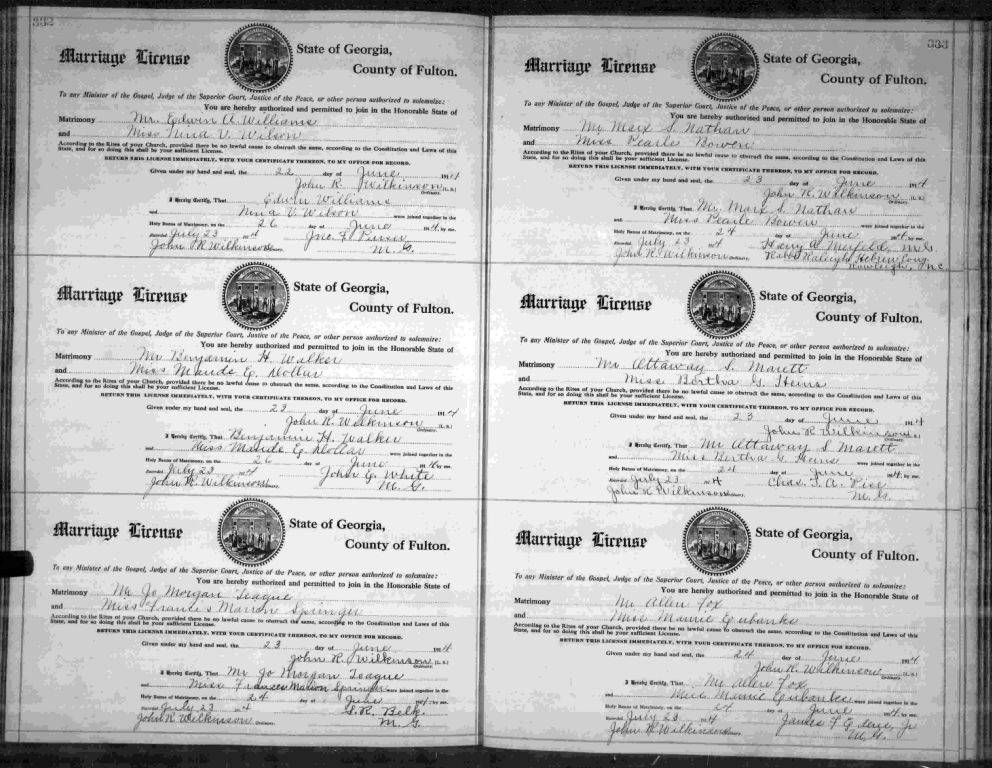 332
Marriage License
State of Georgia,
County of Fulton.
To any Minister of the Gospel, Judge of the Superior Court, Justice of the Peace, or other person authorized to solemnize:
You are hereby authorized and permitted to join in the Honorable State of
Matrimony Mr. Edwin A Williams
and Miss Nina V. Wilson
According to the Rites of your Church, provided there be no lawful cause to obstruct the same, according to the Constitution and Laws of this
State, and for so doing this shall be your sufficient License.
RETURN THIS LICENSE IMMEDIATELY, WITH YOUR CERTIFICATE THEREON, TO MY OFFICE FOR RECORD.
Given under my hand and seal, the 22 day of June 1914
John R. Wilkinson (L. S.)
Ordinary.
I Hereby Certify, That Edwin Williams
and Nina V. Wilson were joined together in the
Holy Banns of Matrimony, on the 26 day of June 1914, by me.
Recorded July 23 1914 Jno. F.
John R Wilkinson Ordinary. M. G.
Marriage License
State of Georgia,
County of Fulton.
To any Minister of the Gospel, Judge of the Superior Court, Justice of the Peace, or other person authorized to solemnize:
You are hereby authorized and permitted to join in the Honorable State of
Matrimony Mr Benjamin H. Walker
and Miss Maude E. Dollar
According to the Rites of your Church, provided there be no lawful cause to obstruct the same, according to the Constitution and Laws of this
State, and for so doing this shall be your sufficient License.
RETURN THIS LICENSE IMMEDIATELY, WITH YOUR CERTIFICATE THEREON, TO MY OFFICE FOR RECORD.
Given under my hand and seal, the 23 day of June 1914
John R. Wilkinson (L. S.)
Ordinary.
I Hereby Certify, That Benjamin H. Walker
and Miss Maude E. Dollar were joined together in the
Holy Banns of Matrimony, on the 26 day of June 1914, by me.
Recorded July 23 1914 John E. White
John R. Wilkinson Ordinary. M. G.
Marriage License
State of Georgia,
County of Fulton.
To any Minister of the Gospel, Judge of the Superior Court, Justice of the Peace, or other person authorized to solemnize:
You are hereby authorized and permitted to join in the Honorable State of
Matrimony Mr Jo Morgan League
and Miss Frances Marion Springer
According to the Rites of your Church, provided there be no lawful cause to obstruct the same, according to the Constitution and Laws of this
State, and for so doing this shall be your sufficient License.
RETURN THIS LICENSE IMMEDIATELY, WITH YOUR CERTIFICATE THEREON, TO MY OFFICE FOR RECORD.
Given under my hand and seal, the 23 day of June 1914
John R. Wilkinson (L. S.)
Ordinary.
I Hereby Certify, That Mr Jo Morgan League
and Miss Frances Marion Springer were joined together in the
Holy Banns of Matrimony, on the 24 day of June 1914, by me.
Recorded July 23 1914 S. R. Belk
John R. Wilkinson Ordinary. M. G.
333
Marriage License
State of Georgia,
County of Fulton.
To any Minister of the Gospel, Judge of the Superior Court, Justice of the Peace, or other person authorized to solemnize:
You are hereby authorized and permitted to join in the Honorable State of
Matrimony Mr Marx S. Nathan
and Miss Pearle Bowen
According to the Rites of your Church, provided there be no lawful cause to obstruct the same, according to the Constitution and Laws of this
State, and for so doing this shall be your sufficient License.
RETURN THIS LICENSE IMMEDIATELY, WITH YOUR CERTIFICATE THEREON, TO MY OFFICE FOR RECORD.
Given under my hand and seal, the 23 day of June 1914
John R. Wilkinson (L. S.)
Ordinary.
I Hereby Certify, That Mr. Marx S. Nathan
and Miss Pearle Bowen were joined together in the
Holy Banns of Matrimony, on the 24 day of June 1914, by me.
Recorded July 23 1914 Harry A. Merfeld, M. G.
John R. Wilkinson Ordinary. Rabbi Raleigh Hebrew Cong.
Rawleigh, N C
Marriage License
State of Georgia,
County of Fulton.
To any Minister of the Gospel, Judge of the Superior Court, Justice of the Peace, or other person authorized to solemnize:
You are hereby authorized and permitted to join in the Honorable State of
Matrimony Mr Attaway S. Marett
and Miss Bertha G. Heins
According to the Rites of your Church, provided there be no lawful cause to obstruct the same, according to the Constitution and Laws of this
State, and for so doing this shall be your sufficient License.
RETURN THIS LICENSE IMMEDIATELY, WITH YOUR CERTIFICATE THEREON, TO MY OFFICE FOR RECORD.
Given under my hand and seal, the 23 day of June 1914
John R Wilkinson (L. S.)
Ordinary.
I Hereby Certify, That Mr Attaway S Marett
and Miss Bertha G. Heins were joined together in the
Holy Banns of Matrimony, on the 24 day of June 1914, by me.
Recorded July 23 1914 Chas. T. A. Pise
John R. Wilkinson Ordinary. M. G.
Marriage License
State of Georgia,
County of Fulton.
To any Minister of the Gospel, Judge of the Superior Court, Justice of the Peace, or other person authorized to solemnize:
You are hereby authorized and permitted to join in the Honorable State of
Matrimony Mr Allen Fox
and Miss Mamie Eubanks
According to the Rites of your Church, provided there be no lawful cause to obstruct the same, according to the Constitution and Laws of this
State, and for so doing this shall be your sufficient License.
RETURN THIS LICENSE IMMEDIATELY, WITH YOUR CERTIFICATE THEREON, TO MY OFFICE FOR RECORD.
Given under my hand and seal, the 24 day of June 1914
John R. Wilkinson (L. S.)
Ordinary.
I Hereby Certify, That Mr Allen Fox
and Miss Mamie Eubanks were joined together in the
Holy Banns of Matrimony, on the 24 day of June 1914, by me.
Recorded July 23 1914 James F Jr
John R Wilkinson Ordinary. M. G.